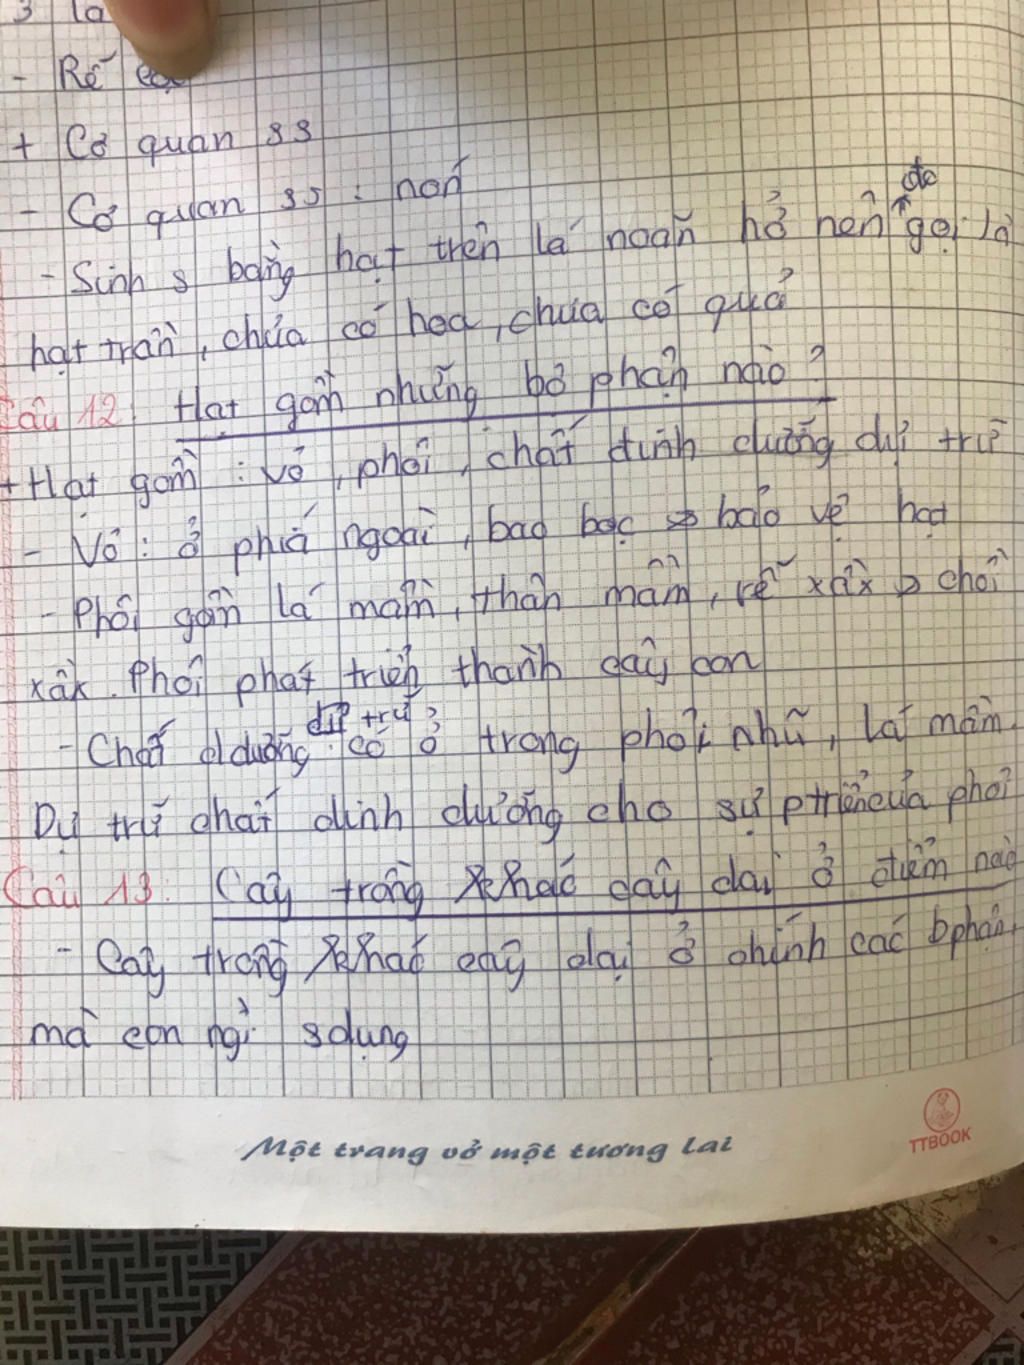 3 la
- Rễ cọc
+ Cơ quan ss
- Cơ quan ss : nón
đc
- Sinh s bằng hạt trên lá noãn hở nên gọi là
hạt trần, chưa có hoa, chưa có quả
Câu 12: Hạt gồm những bộ phận nào?
+ Hạt gồm : vỏ, phôi, chất dinh dưỡng dự trữ
- Vỏ : ở phía ngoài, bao bọc bảo vệ hạt
- Phôi gồm lá mầm, thân mầm, rễ chồi
Phôi phát triển thành cây con
dự trữ
- Chất dưỡng có ở trong phôi nhũ, lá mầm.
Dự trữ chất dinh dưỡng cho sự ptriển của phôi
Câu 13: Cây trồng khác cây dại ở điểm nào
- Cây trồng khác cây dại ở chính các bphận
mà con ng` sdụng
Một trang vở một tương lai
TTBOOK